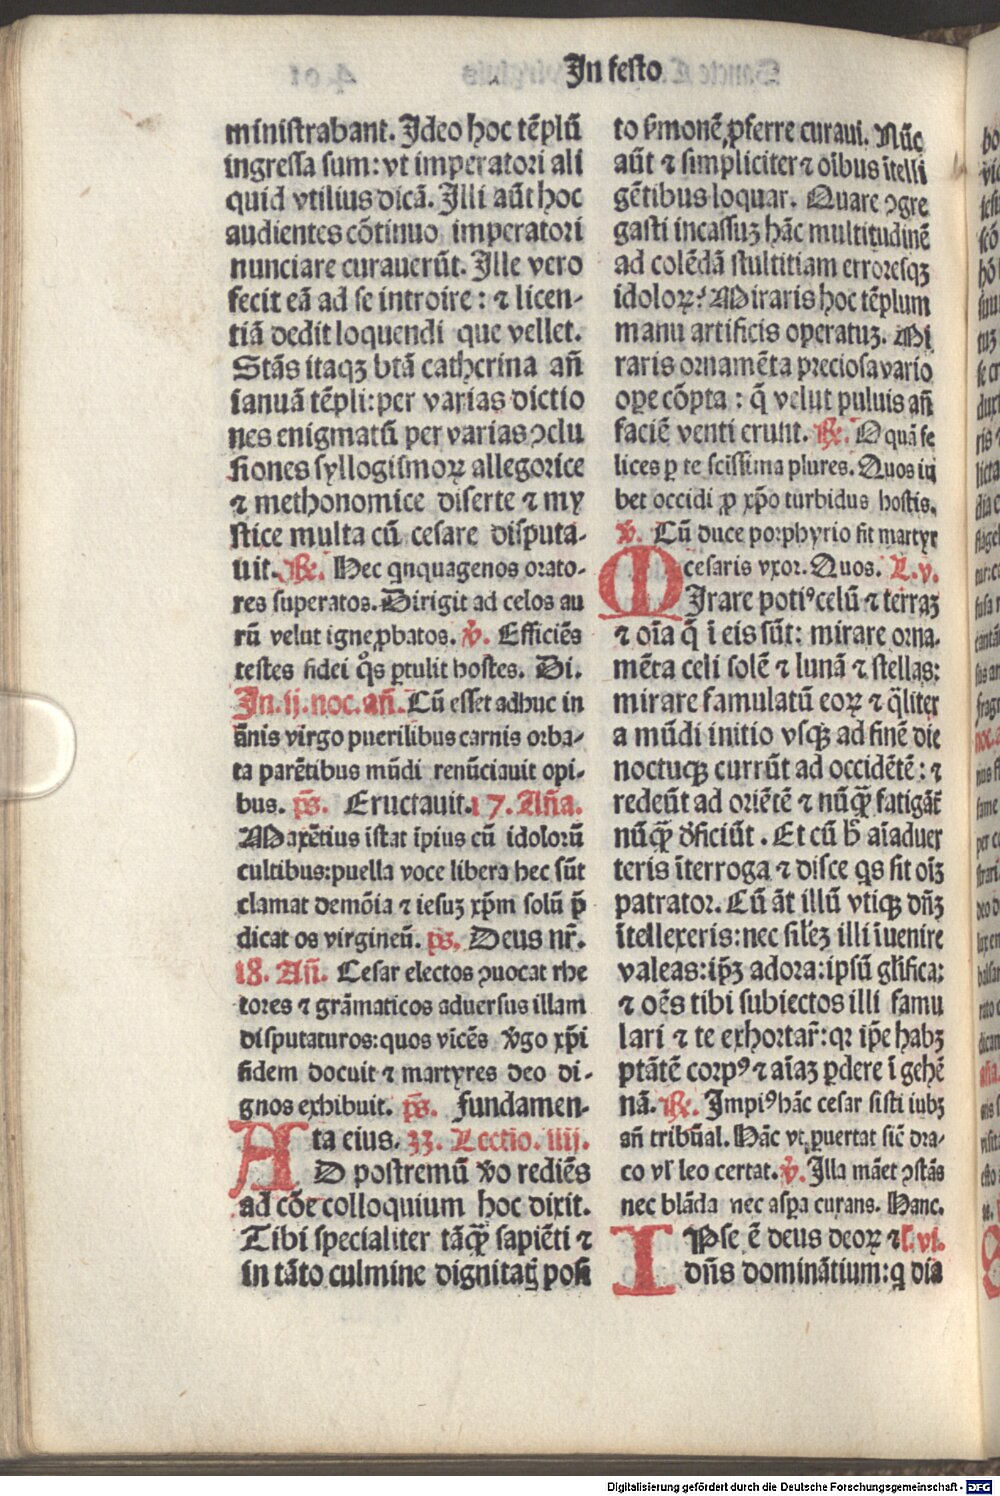 In festo
ministrabant. Ideo hoc tēplū
ingressa sum: vt imperatori ali
quid vtilius dicā. Illi aūt hoc
audientes cōtinuo imperatori
nunciare curauerūt. Ille vero
fecit eā ad se introire: ⁊ licen-
tiā dedit loquendi que vellet.
Stās itaqꝫ btā catherina añ
ianuā tēpli: per varias dictio
nes enigmatū per varias ↄclu
siones syllogismoꝝ allegorice
⁊ methonomice diserte ⁊ my
stice multa cū cesare disputa-
uit. ℟. Hec qnquagenos orato-
res superatos. Dirigit ad celos au
rū velut igne ꝓbatos. ℣. Efficiēs
testes fidei qͦs ꝑtulit hostes. Di.
In. ij. noc. añ. Cū esset adhuc in
ānis virgo puerilibus carnis orba-
ta parētibus mūdi renūciauit opi-
bus. ps̄. Eructauit. 17. Aña.
Maxētius istat ipius cū idolorū
cultibus: puella voce libera hec sūt
clamat demōia ⁊ iesuꝫ xp̄m solū p̄
dicat os virgineū. ps̄. Deus nr̄.
18. Añ. Cesar electos ↄuocat rhe
tores ⁊ grāmaticos aduersus illam
disputaturos: quos vicēs v̄go xp̄i
fidem docuit ⁊ martyres deo di-
gnos exhibuit. ps̄. Fundamen-
ta eius. 33. Lectio. iiij.
AD postremū v̄o rediēs
ad cōe colloquium hoc dixit.
Tibi specialiter tāqꝫ̄ sapiēti ⁊
in tāto culmine dignitatꝭ posi
to s̄monē ꝓferre curaui. Nūc
aūt ⁊ simpliciter ⁊ oībus ītelli
gētibus loquar. Quare ↄgre
gasti incassuꝫ hāc multitudinē
ad colēdā stultitiam erroresqꝫ
idoloꝝ? Miraris hoc tēplum
manu artificis operatuꝫ. Mi
raris ornamēta preciosa vario
oꝑe cōpta: q̄ velut puluis añ
faciē venti erunt. ℟. O quā fe
lices ꝑ te scissima plures. Quos iu
bet occidi ꝓ xp̄o turbidus hostis.
℣. Cū duce porphyrio fit martyr
cesaris vxor. Quos. L. v.
MIrare potiꝰ celū ⁊ terraꝫ
⁊ oīa q̄ ī eis sūt: mirare orna-
mēta celi solē ⁊ lunā ⁊ stellas:
mirare famulatū eoꝝ ⁊ q̄liter
a mūdi initio vsqꝫ ad finē die
noctuqꝫ currūt ad occidētē: ⁊
redeūt ad oriētē ⁊ nūqꝫ̄ fatigāt̄
nūqꝫ̄ d̄ficiūt. Et cū h̄ aīaduer
teris īterroga ⁊ disce qs sit oīꝫ
patrator. Cū āt illū vtiqꝫ dñꝫ
ītellexeris: nec sil̄eꝫ illi īuenire
valeas: ip̄ꝫ adora: ipsū gl̄ifica:
⁊ oēs tibi subiectos illi famu
lari ⁊ te exhortar̄: qꝛ ip̄e habꝫ
ptātē corpꝰ ⁊ aīaꝫ ꝑdere ī gehē
nā. ℟. Impiꝰ hāc cesar sisti iubꝫ
añ tribūal. Hāc vt ꝑuertat sic̄ dra-
co vl̄ leo certat. ℣. Illa māet ↄstās
nec blāda nec aspa curans. Hanc.
IPse ē deus deoꝝ ⁊ l. vi.
dñs dominātium: q dia
Digitalisierung gefördert durch die Deutsche Forschungsgemeinschaft - DFG